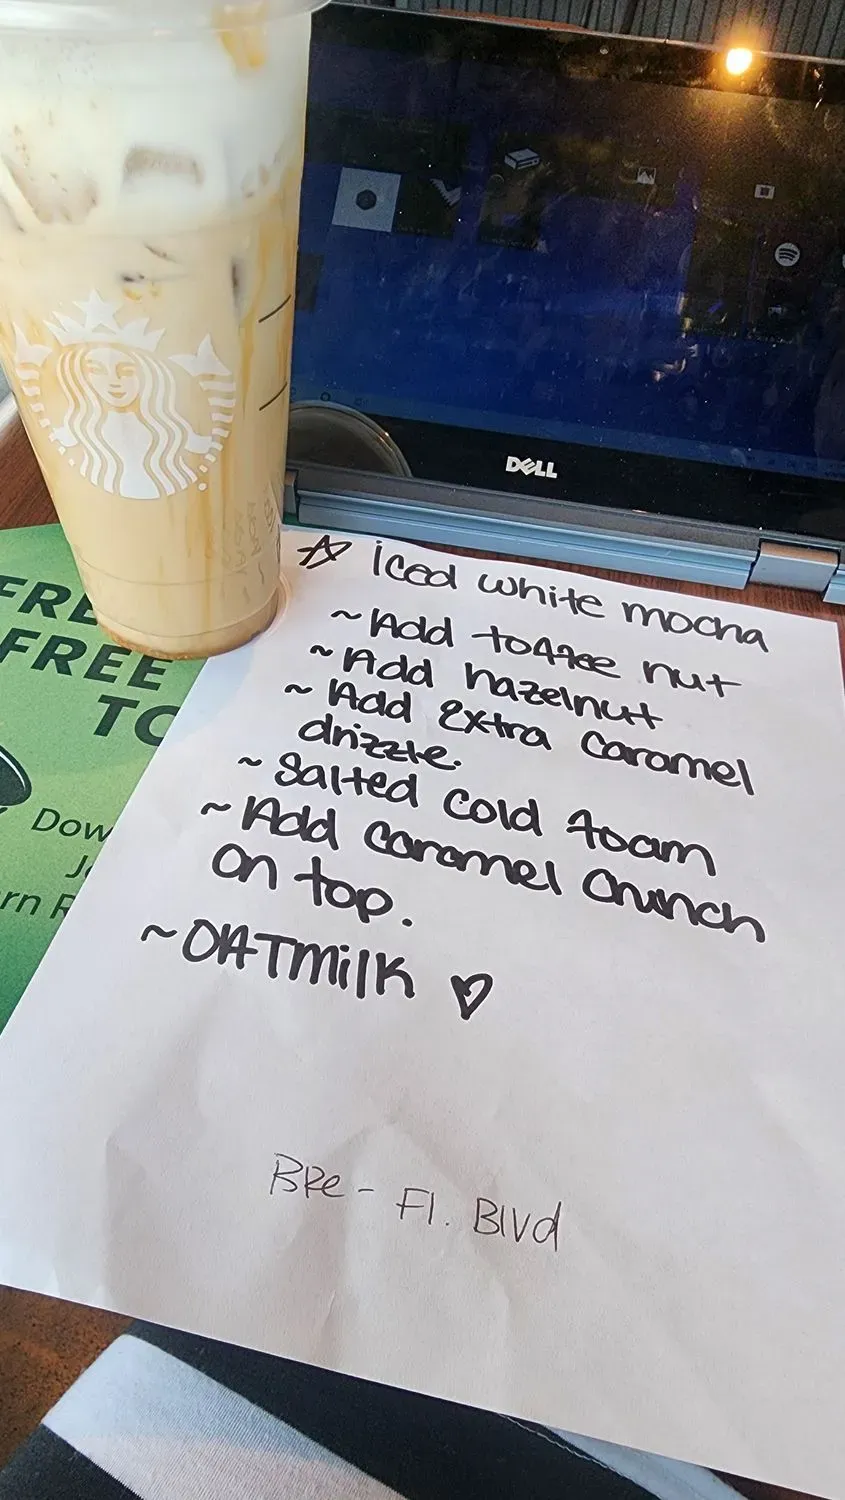 DELL
FRE
FREE
TO
Dow
rn R
☆ iced white mocha
~ Add toffee nut
~ Add hazelnut
~ Add extra caramel
drizzle.
~ Salted cold foam
~ Add caramel crunch
on top.
~ OATmilk ♡
BRe - Fl. Blvd